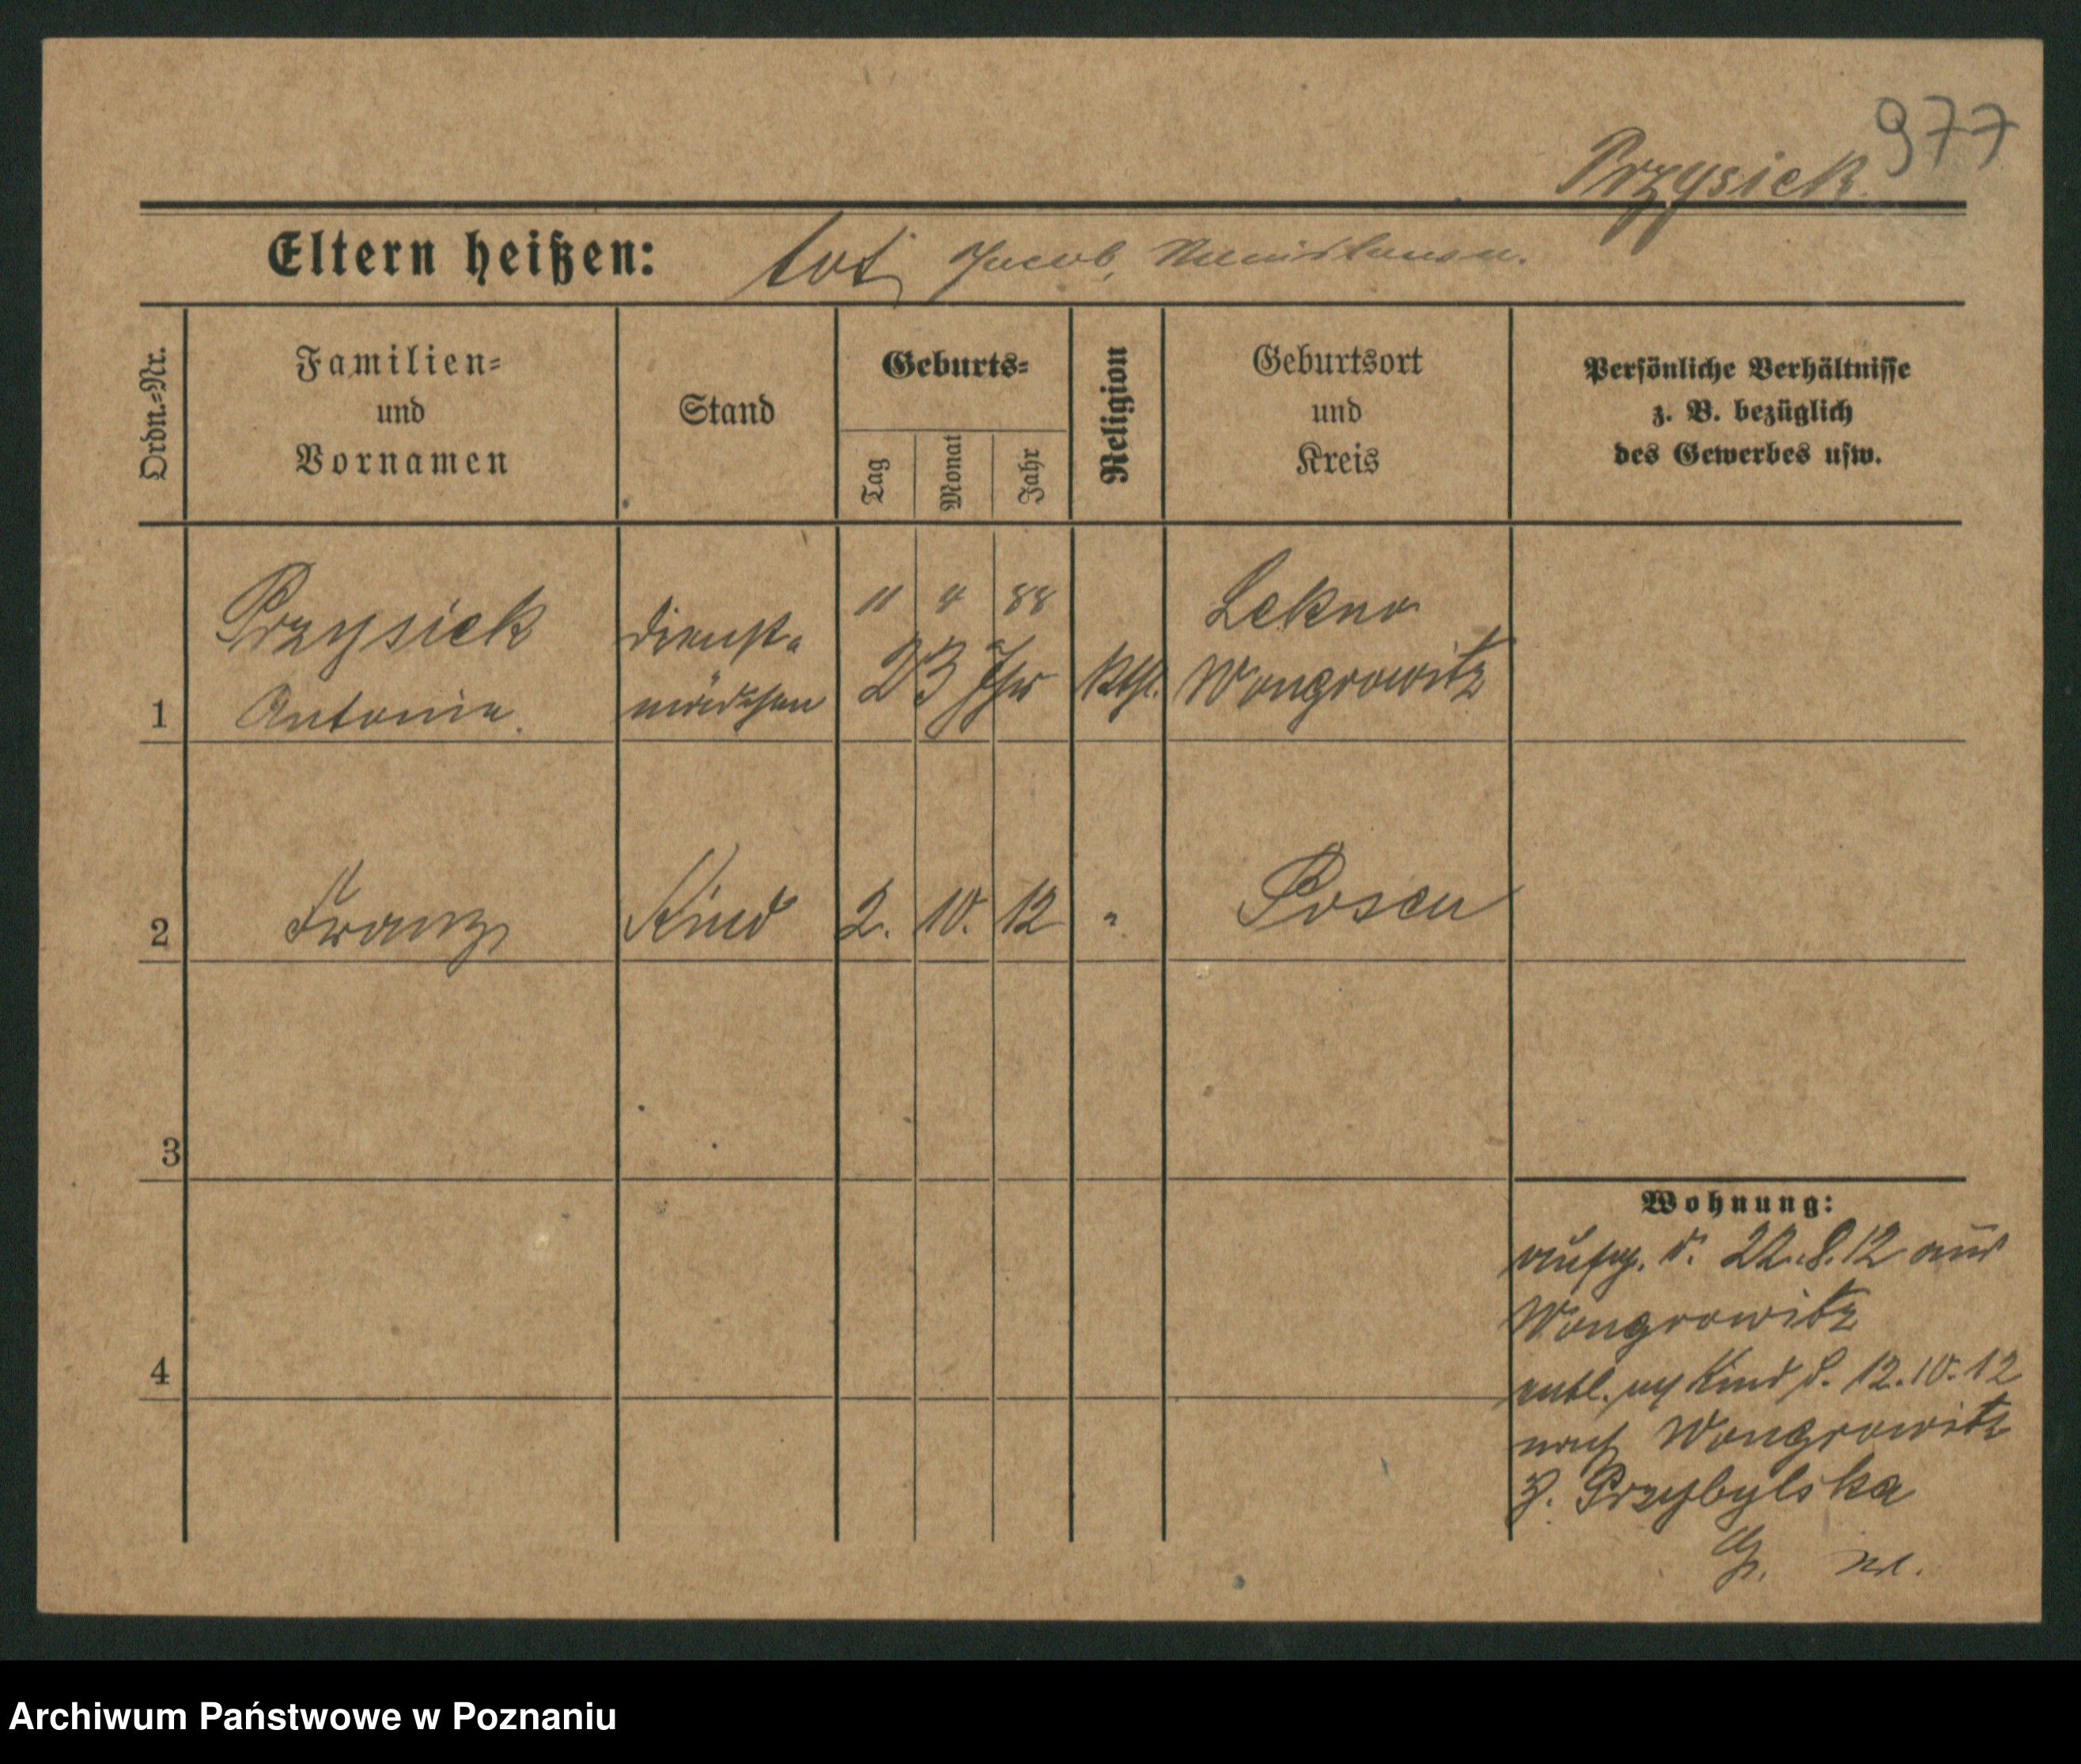 977
Przysiek.
Eltern heißen: tot, Jacob,
Ordn.-Nr.
Familien-
und
Vornamen
Stand
Geburts-
Tag
Monat
Jahr
Religion
Geburtsort
und
Kreis
Persönliche Verhältnisse
z. B. bezüglich
des Gewerbes usw.
11 4 88
Przysiek Dienst- Lekno
1 Antonie. mädchen 23 Jhr kth. Wongrowitz
2 Franz Kind 2. 10. 12 " Posen
3
4
Wohnung:
22.8.12 aus
Wongrowitz
entl. Kind d. 12.10.12
nach Wongrowitz
z. Przybylska